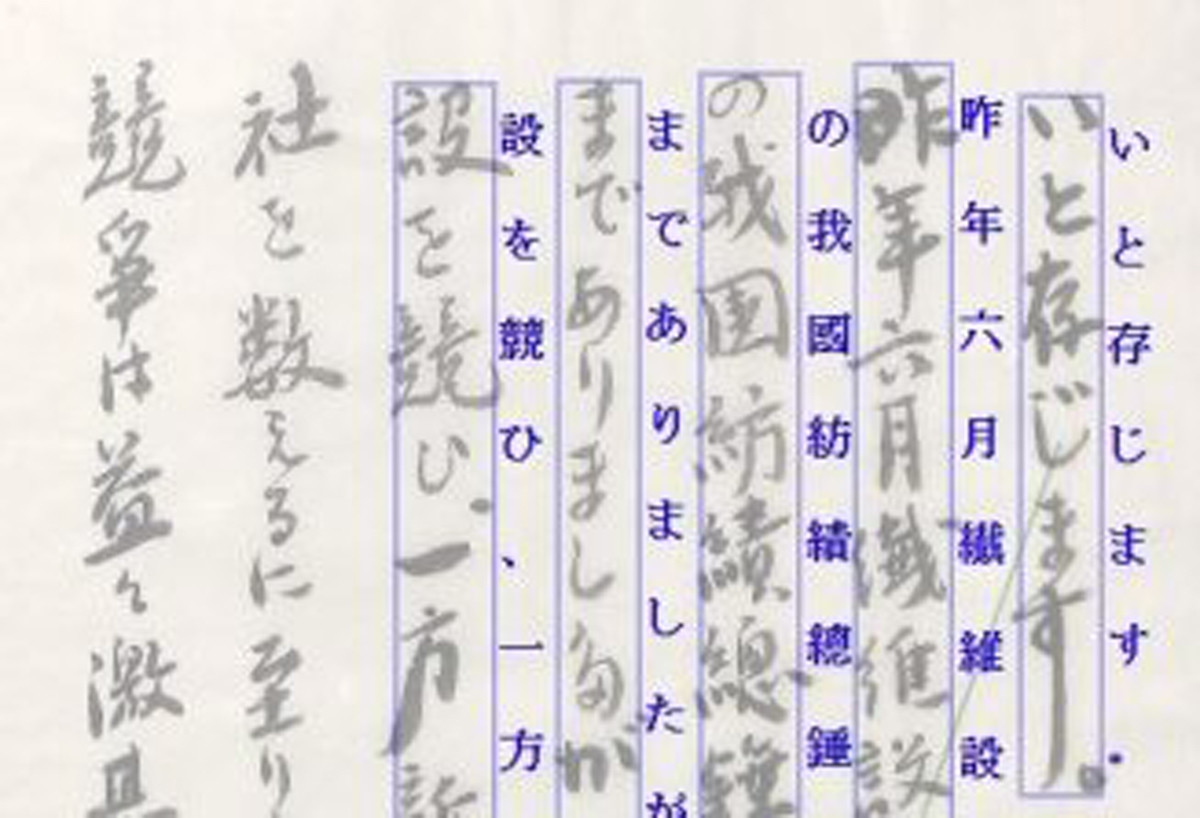 いと存じます.
いと存じます。
昨年六月繊維設
昨年六月繊維設
の我國紡績總錘
の我国紡績總錘
までありましたが
までありましたが
設を競ひ、一方
設を競ひ、一方
社を数えるに至り
競争は益々激甚